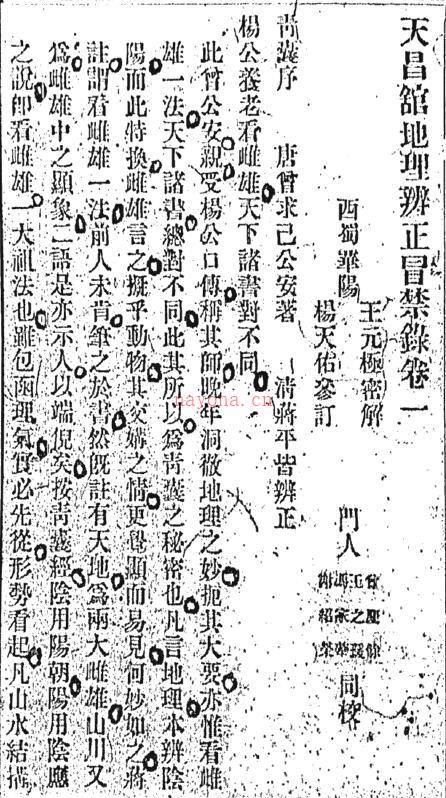 天昌舘地理辨正冒禁錄卷一
西蜀華陽
王元極密解
楊天佑參訂
門人
同校
青囊序 唐曾求己公安著 清蔣平皆辨正
楊公養老看雌雄天下諸書對不同
此曾公安親受楊公口傳稱其師晚年洞徹地理之妙扼其大要亦惟看雌
雄一法天下諸書總對不同此其所以為青囊之秘密也凡言地理本辨陰
陽而此特換雌雄言之擬乎動物其交媾之情更覺顯而易見何妙如之蔣
註謂看雌雄一法前人未肯筆之於書然旣註有天地為兩大雌雄山川又
為雌雄中之顯象二語是亦示人以端倪矣按青囊經陰用陽朝陽用陰應
之說卽看雌雄一大祖法也雖包函理氣實必先從形勢看起凡山水結構
nayona.cn